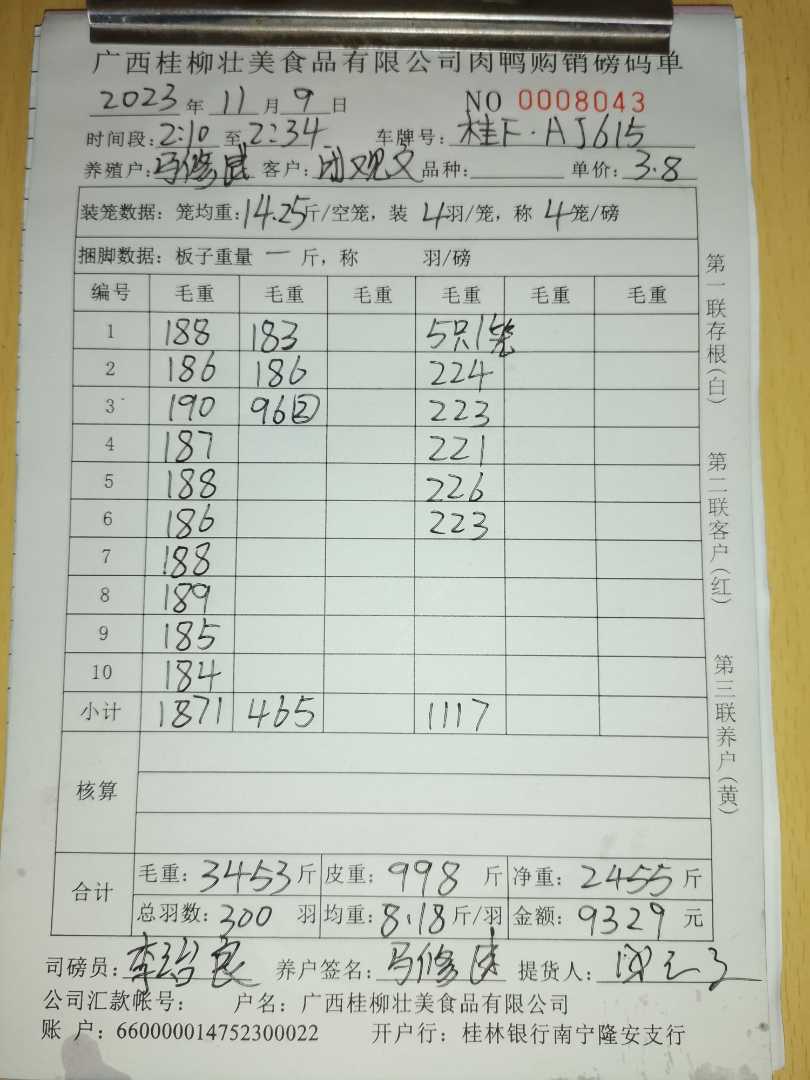 广西桂柳壮美食品有限公司肉鸭购销磅码单
2023年11月9日 NO 0008043
时间段:2:10至2:34 车牌号:桂F·AJ615
养殖户:马修 客户: 观文 品种: 单价:3.8
装笼数据:笼均重:14.25斤/空笼,装4羽/笼,称4笼/磅
捆脚数据:板子重量一斤,称 羽/磅
编号 毛重 毛重 毛重 毛重 毛重 毛重
1 188 183 5只1笼
2 186 186 224
3 190 96② 223
4 187 221
5 188 226
6 186 223
7 188
8 189
9 185
10 184
小计 1871 465 1117
核算
合计
毛重:3453斤 皮重:998斤 净重:2455斤
总羽数:300羽 均重:8.18斤/羽 金额:9329元
司磅员:李 良 养户签名:马修 提货人:
公司汇款帐号: 户名:广西桂柳壮美食品有限公司
账 户:660000014752300022 开户行:桂林银行南宁隆安支行
第一联存根(白)
第二联客户(红)
第三联养户(黄)